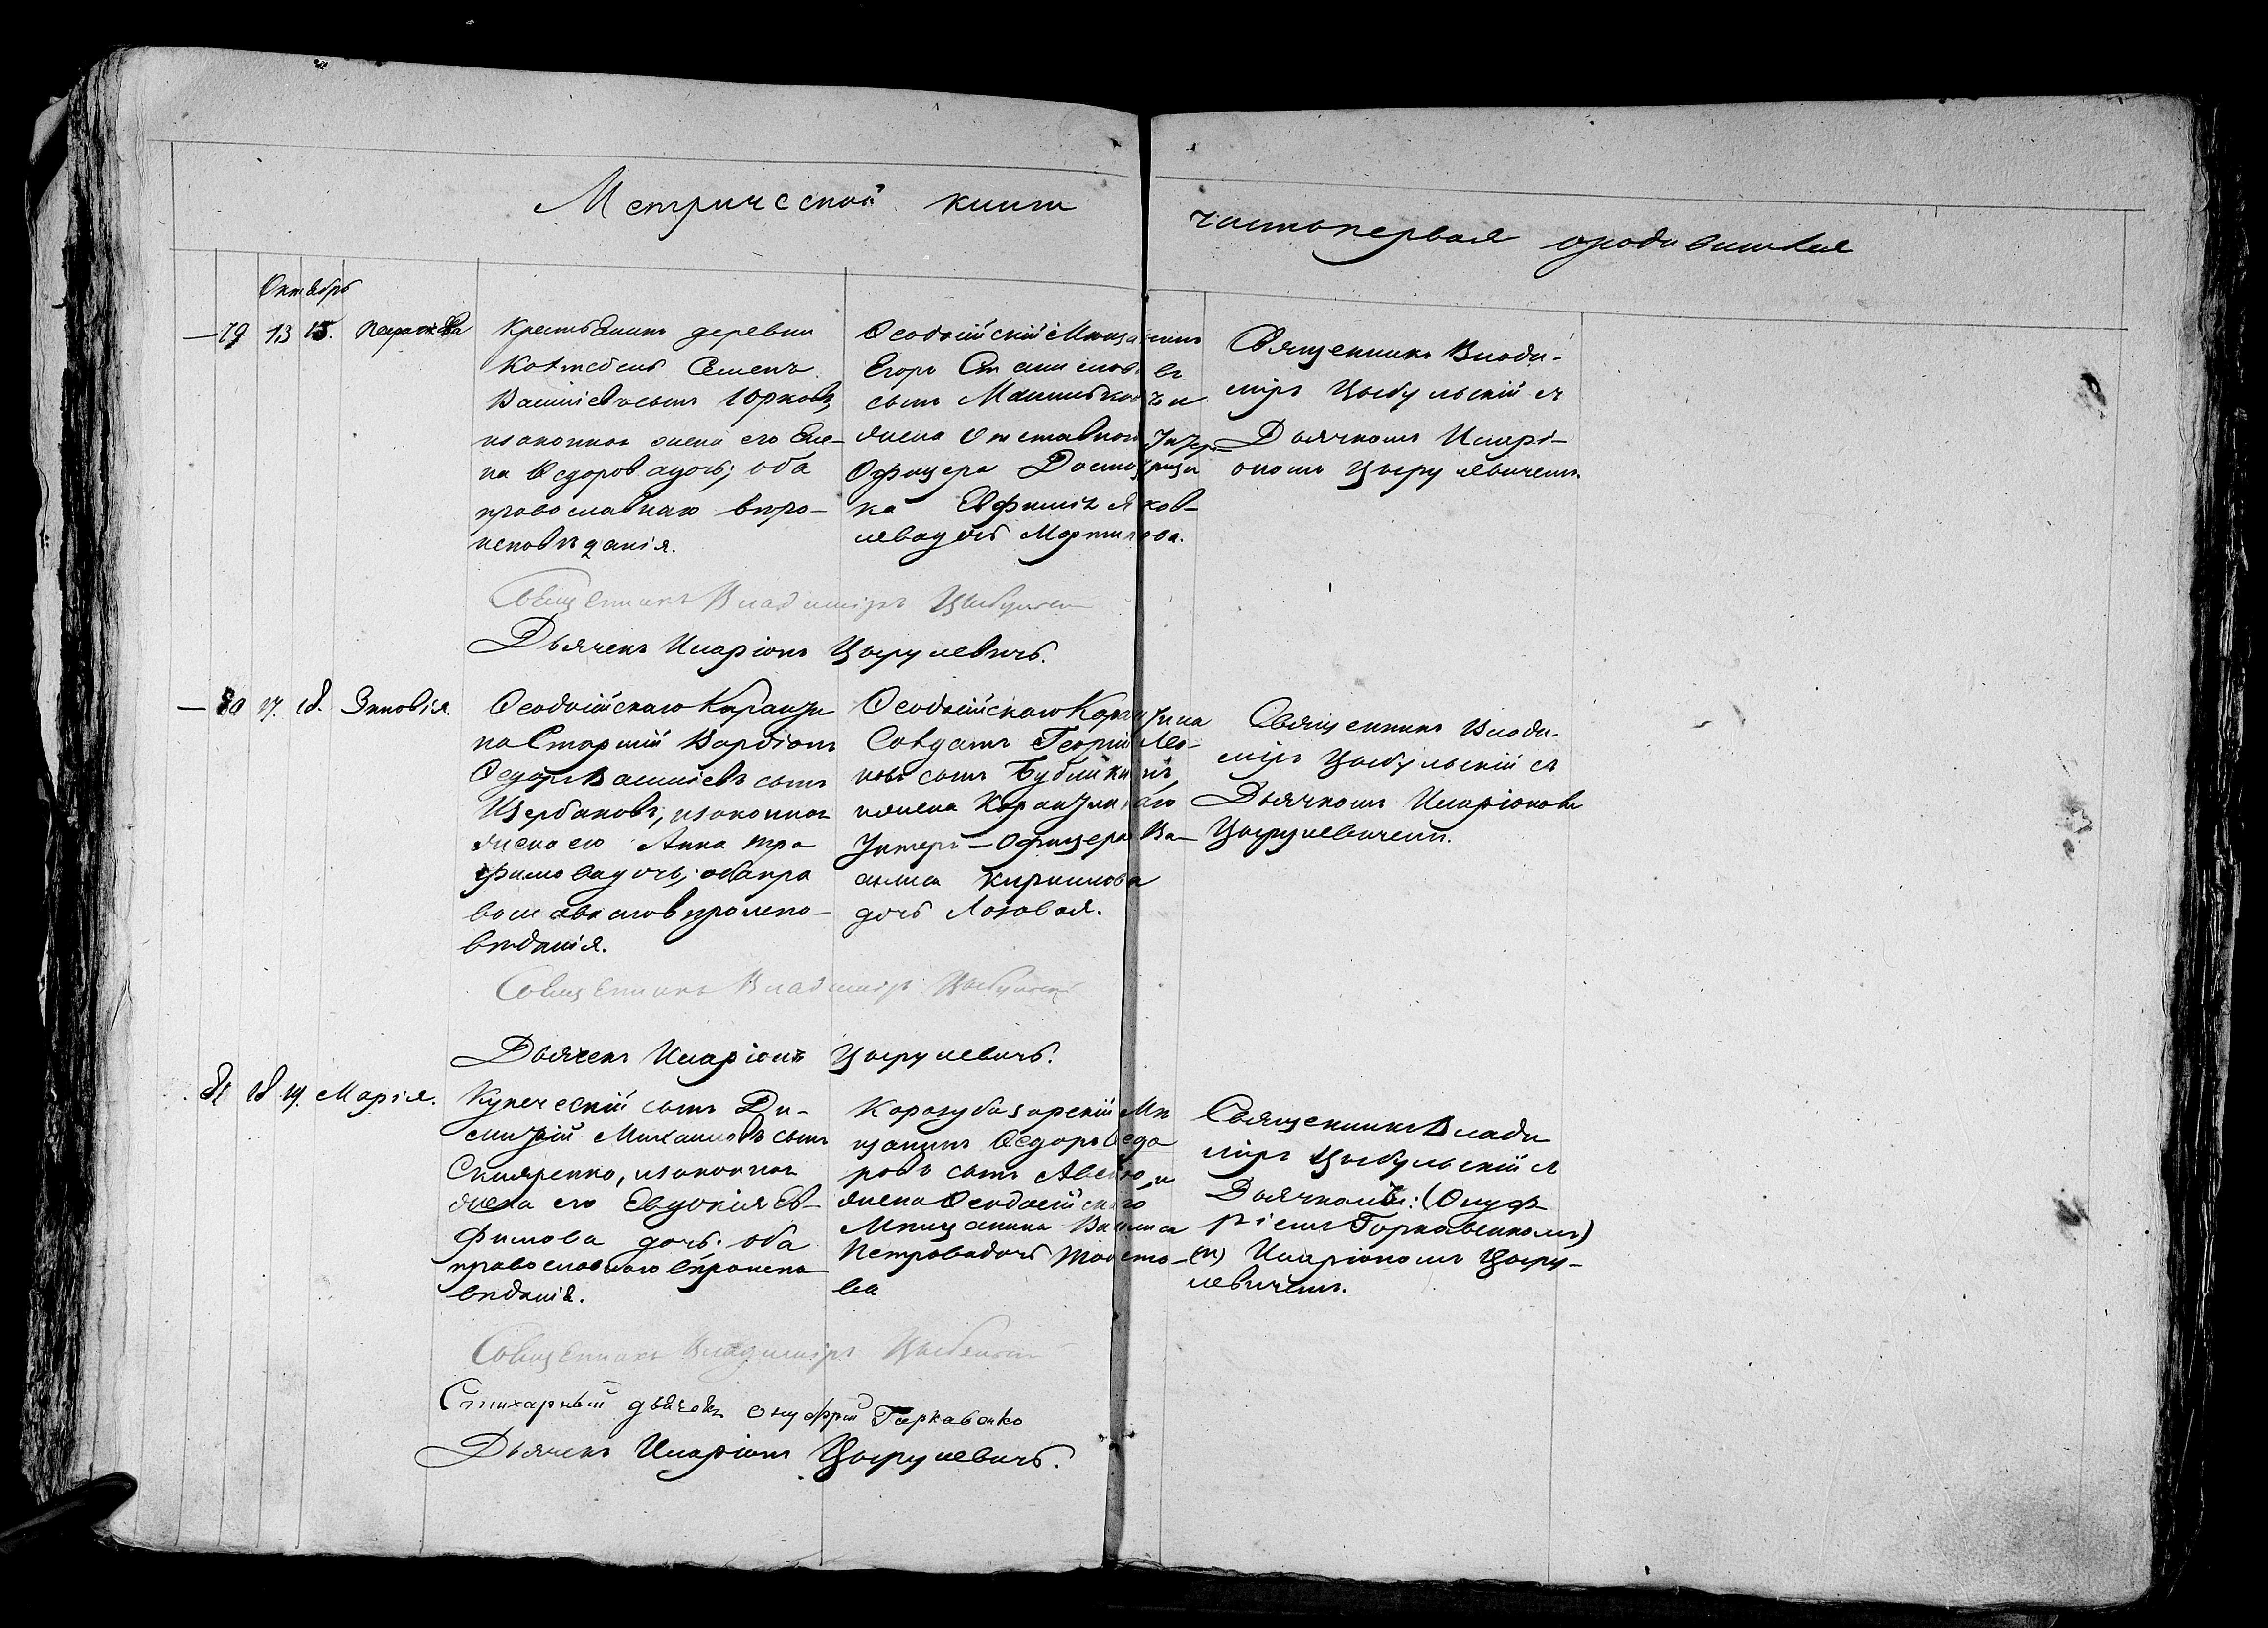 Метрической книги
частьпервая ородившихся
Октябрь
79 13 15. Параскева
Крестьянинъ деревни
Коктебель Семенъ
Васильевъ сынъ Юрковъ,
изаконная жена его Еле-
на Ѳедорова дочь; оба
православнаго вѣро-
исповѣданія.
Ѳеодосійскій Мѣщанинъ
Егоръ
сынъ и
жена Отставного Унтер-
Офицера
ка Евфимія Яков-
лева дочь Мартинова.
Священникъ Влади-
міръ Цыбульскій съ
Дьячкомъ Иларі-
ономъ Цыруlевичемъ.
Священникъ Владиміръ Цыбульскій
Дьячекъ Иларіонъ Цырулевичъ.
80 17. 18. Зиновія.
Ѳеодосійскаго Каранти
на Старшій Вардіонъ
Ѳедоръ Васильевъ сынъ
Щербаковъ, изаконная
жена его Анна Тро
фимова дочь; оба пра
вославнаго вѣроиспо-
вѣданія.
Ѳеодосійскаго Карантина
Солдатъ Георгій Лео-
новъ сынъ
ижена Карантиннаго
Унтеръ-Офицера Ва-
силиса Кирилова
дочь Лозовая.
Священникъ Влади-
міръ Цыбульскій съ
Дьячкомъ Иларіономъ
Цырулевичемъ.
Священникъ Владиміръ Цыбульскій
Дьячекъ Иларіонъ Цырулевичъ.
81 18 19. Марія.
Купеческій сынъ Ди-
митрій Михаиловъ сынъ
Скляренко, изаконная
жена его Евдокія Ев-
фимова дочь. оба
православнаго вѣроиспо
вѣданія.
Карасубазарскій Мѣ
щанинъ Ѳедоръ Ѳедо
ровъ сынъ и
жена Ѳеодосійскаго
Мѣщанина Василиса
Петрова дочь Толсто-
ва
Священникъ Влади
міръ Цыбульскій съ
Дьячкомъ: (Онуф
ріемъ Гаркавенкомъ)
(и) Иларіономъ Цыру-
левичемъ.
Священникъ Владиміръ Цыбульскій
Стихарный дьячокъ Онуфрій Гаркавенко
Дьячекъ Иларіонъ Цырулевичъ.